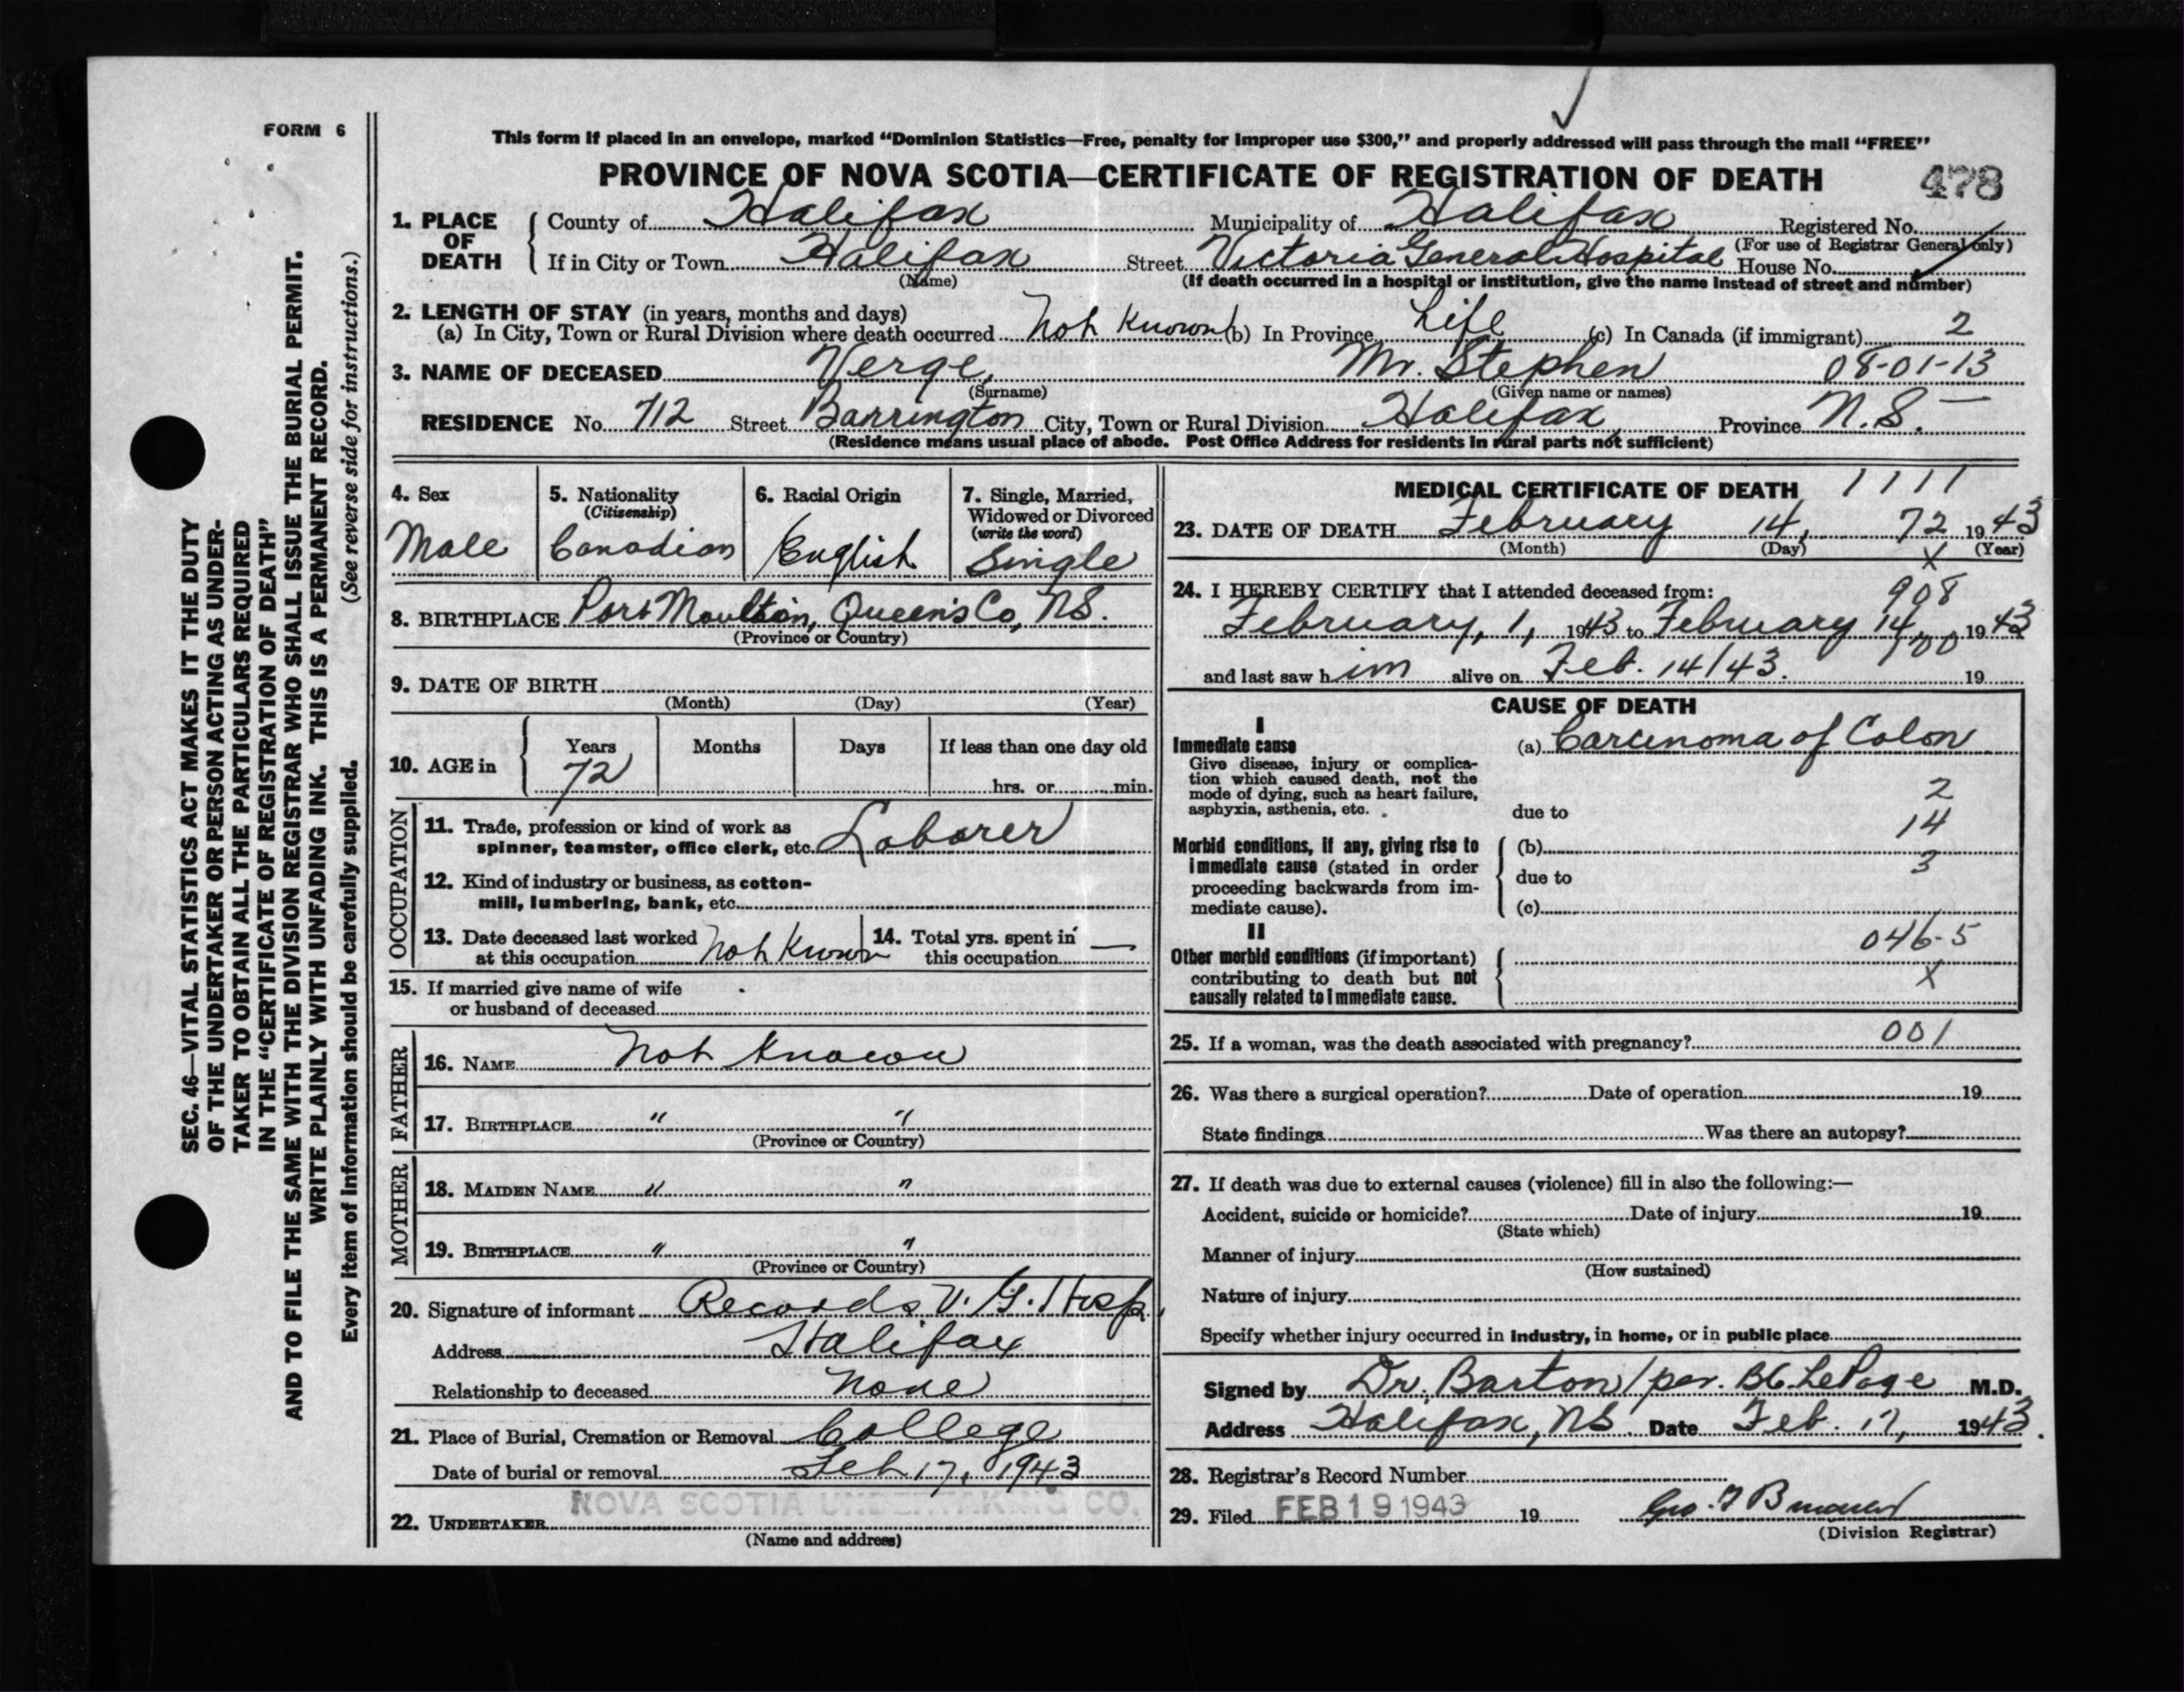 FORM 6
This form if placed in an envelope, marked “Dominion Statistics—Free, penalty for improper use $300,” and properly addressed will pass through the mail “FREE”
PROVINCE OF NOVA SCOTIA—CERTIFICATE OF REGISTRATION OF DEATH 478
1. PLACE OF DEATH { County of Halifax Municipality of Halifax Registered No.
(For use of Registrar General only)
If in City or Town Halifax Street Victoria General Hospital House No.
(Name) (If death occurred in a hospital or institution, give the name instead of street and number)
2. LENGTH OF STAY (in years, months and days)
(a) In City, Town or Rural Division where death occurred Not Known (b) In Province Life (c) In Canada (if immigrant) 2
3. NAME OF DECEASED Verge, Mr. Stephen 08-01-13
(Surname) (Given name or names)
RESIDENCE No. 712 Street Barrington City, Town or Rural Division Halifax, Province N.S. —
(Residence means usual place of abode. Post Office Address for residents in rural parts not sufficient)
4. Sex 5. Nationality (Citizenship) 6. Racial Origin 7. Single, Married, Widowed or Divorced (write the word)
Male Canadian English Single
8. BIRTHPLACE Port Moultain, Queen's Co, NS.
(Province or Country)
9. DATE OF BIRTH
(Month) (Day) (Year)
10. AGE in { Years Months Days If less than one day old
72 hrs. or min.
OCCUPATION
11. Trade, profession or kind of work as
spinner, teamster, office clerk, etc. Laborer
12. Kind of industry or business, as cotton-
mill, lumbering, bank, etc.
13. Date deceased last worked at this occupation Not Known 14. Total yrs. spent in this occupation —
15. If married give name of wife
or husband of deceased
FATHER
16. NAME Not Known
17. BIRTHPLACE " "
(Province or Country)
MOTHER
18. MAIDEN NAME " "
19. BIRTHPLACE " "
(Province or Country)
20. Signature of informant Records V. G. Hosp.
Address Halifax
Relationship to deceased None
21. Place of Burial, Cremation or Removal College
Date of burial or removal Feb 17, 1943
NOVA SCOTIA UNDERTAKING CO.
22. UNDERTAKER
(Name and address)
MEDICAL CERTIFICATE OF DEATH 1111
23. DATE OF DEATH February 14, 72 1943
(Month) (Day) X (Year)
24. I HEREBY CERTIFY that I attended deceased from: 908
February, 1, 1943 to February 14, 1943
100
and last saw him alive on Feb. 14/43. 19
CAUSE OF DEATH
I
Immediate cause (a) Carcinoma of Colon
Give disease, injury or complica-
tion which caused death, not the
mode of dying, such as heart failure, 2
asphyxia, asthenia, etc. due to
14
Morbid conditions, if any, giving rise to (b)
immediate cause (stated in order 3
proceeding backwards from im- due to
mediate cause). (c)
II 046-5
Other morbid conditions (if important)
contributing to death but not X
causally related to immediate cause.
25. If a woman, was the death associated with pregnancy? 001
26. Was there a surgical operation? Date of operation 19
State findings Was there an autopsy?
27. If death was due to external causes (violence) fill in also the following:—
Accident, suicide or homicide? Date of injury 19
(State which)
Manner of injury
(How sustained)
Nature of injury
Specify whether injury occurred in industry, in home, or in public place
Signed by Dr. Barton/per. B6 LePage M.D.
Address Halifax, NS. Date Feb. 17, 1943.
28. Registrar's Record Number
29. Filed FEB 19 1943 19
(Division Registrar)
SEC. 46—VITAL STATISTICS ACT MAKES IT THE DUTY
OF THE UNDERTAKER OR PERSON ACTING AS UNDER-
TAKER TO OBTAIN ALL THE PARTICULARS REQUIRED
IN THE “CERTIFICATE OF REGISTRATION OF DEATH”
AND TO FILE THE SAME WITH THE DIVISION REGISTRAR WHO SHALL ISSUE THE BURIAL PERMIT.
WRITE PLAINLY WITH UNFADING INK. THIS IS A PERMANENT RECORD.
Every item of information should be carefully supplied. (See reverse side for instructions.)